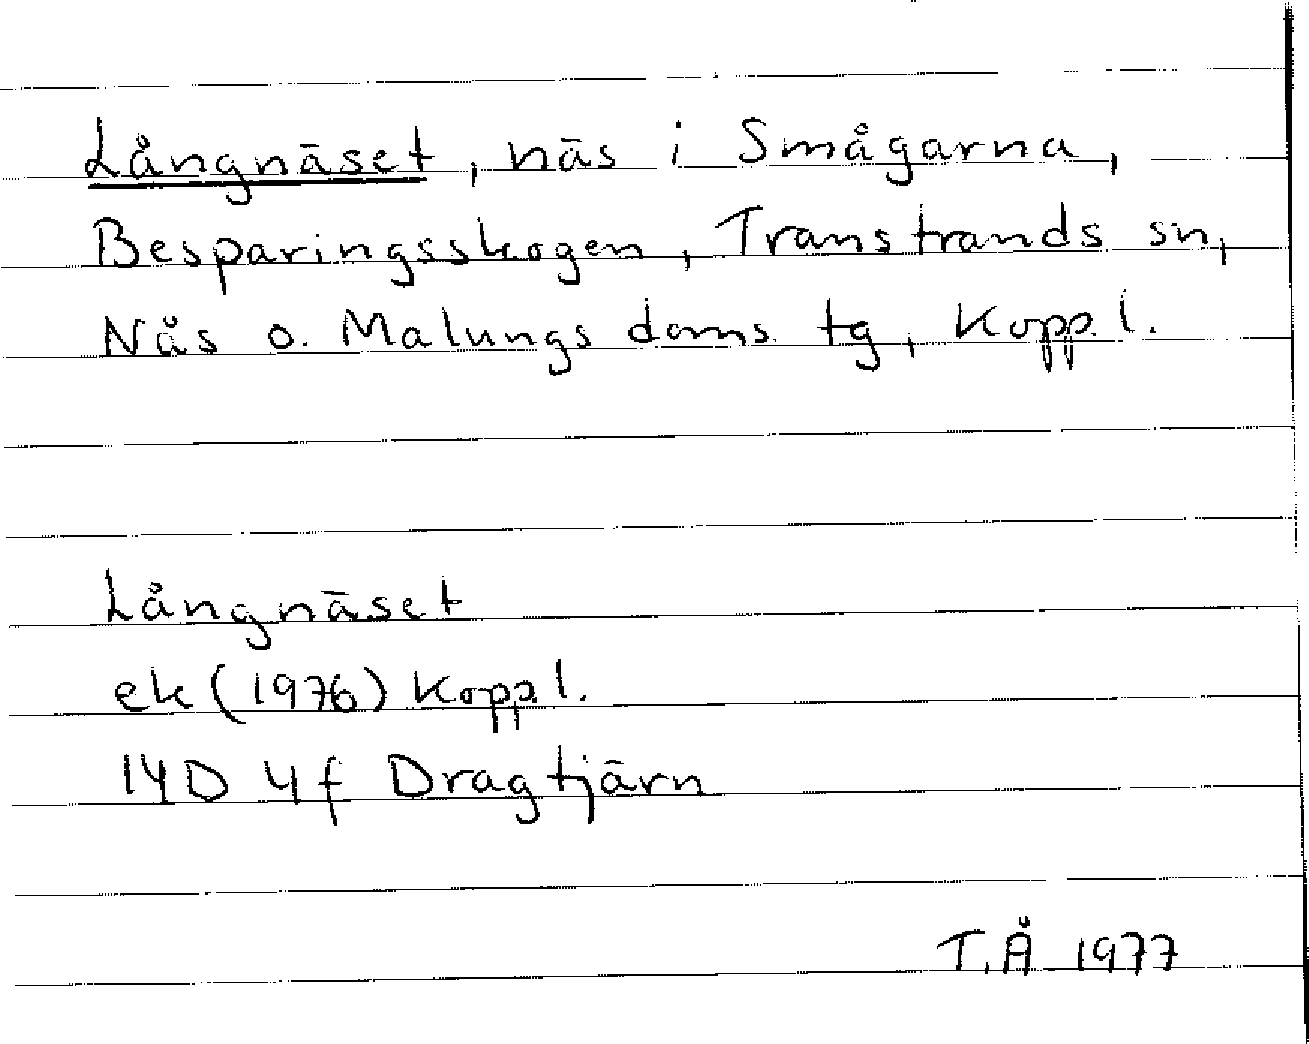 Långnäset, näs i Smågarna,
Besparingsskogen, Transtrands sn,
Nås o. Malungs doms. tg, Kopp. l.
Långnäset
ek (1976) Kopp. l.
14D 4f Dragtjärn
T.Å 1977